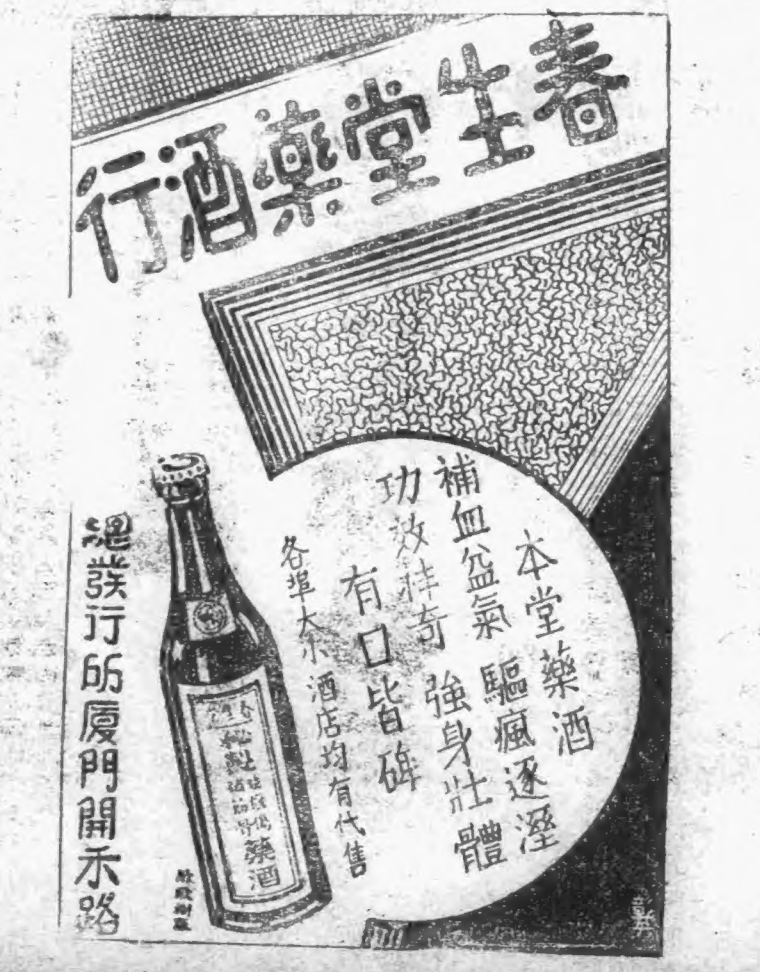 春生堂藥酒行
本堂藥酒
補血益氣 驅瘋逐溼
功效祥奇 強身壯體
有口皆碑
各埠大小酒店均有代售
總發行所厦門開禾路
春生堂
藥酒